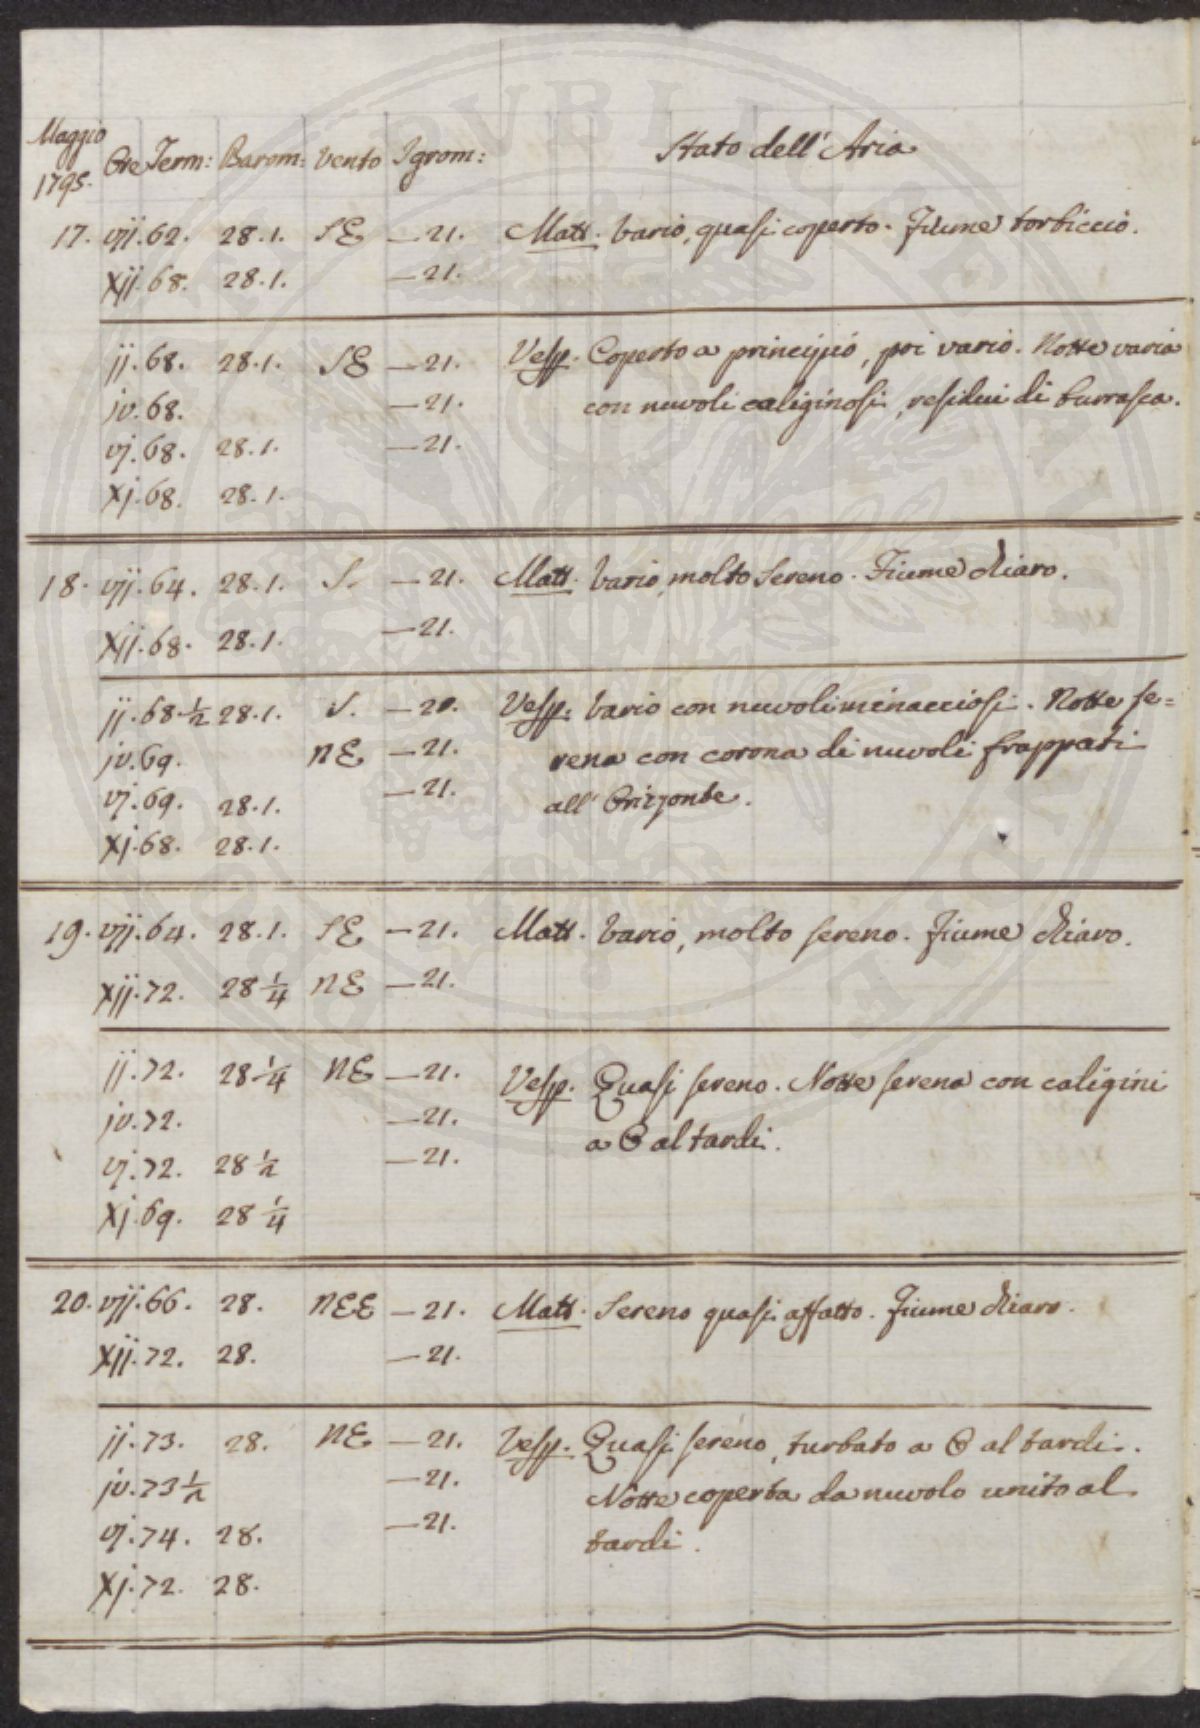 Maggio
1795.
Ore Term: Barom: Vento Igrom: Stato dell'Aria
17. vij. 62. 28.1. SE —21. Matt. Vario, quasi coperto. Fiume torbiccio.
xij. 68. 28.1. —21.
ij. 68. 28.1. SE —21. Vesp. Coperto a principio, poi vario. Notte varia
iv. 68. —21. con nuvoli caliginosi, residui di burrasca.
vj. 68. 28.1. —21.
xj. 68. 28.1.
18. vij. 64. 28.1. S. —21. Matt. Vario, molto Sereno. Fiume chiaro.
xij. 68. 28.1. —21.
ij. 68 1/2 28.1. S. —21. Vesp. Vario con nuvoli minacciosi. Notte se=
iv. 69. NE —21. rena con corona di nuvoli frappati
vj. 69. 28.1. —21. all'Orizzonte.
xj. 68. 28.1.
19. vij. 64. 28.1. SE —21. Matt. Vario, molto sereno. Fiume chiaro.
xij. 72. 28 1/4 NE —21.
ij. 72. 28 1/4 NE —21. Vesp. Quasi sereno. Notte serena con caligini
iv. 72. —21. a O al tardi.
vj. 72. 28 1/2 —21.
xj. 69. 28 1/4
20. vij. 66. 28. NEE —21. Matt. Sereno quasi affatto. Fiume chiaro.
xij. 72. 28. —21.
ij. 73. 28. NE —21. Vesp. Quasi sereno, turbato a O al tardi.
iv. 73 1/2 —21. Notte coperta da nuvolo unito al
vj. 74. 28. —21. tardi.
xj. 72. 28.